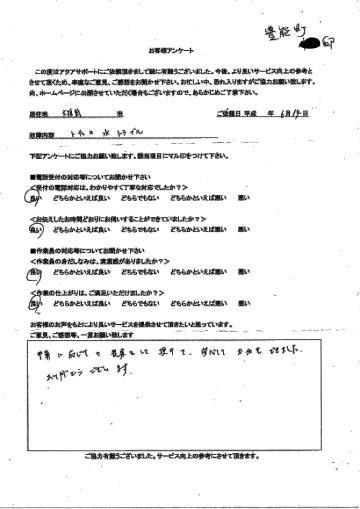 豊能町
邸
お客様アンケート
この度はアクアサポートにご依頼頂きまして誠に有難うございました。今後、より良いサービス向上の参考と
させて頂くため、率直なご意見、ご感想をお聞かせ下さい。お忙しい中、恐れ入りますがご協力お願い致します。
尚、ホームページに公開させていただく場合もございますので、あらかじめご了承下さい。
居住地 市 ご依頼日 平成 年 6月 日
故障内容 トイレの水トラブル
下記アンケートにご協力お願い致します。該当項目にマル印をつけて下さい。
■電話受付の対応等についてお聞かせ下さい
<受付の電話対応は、わかりやすく丁寧な対応でしたか?>
良い どちらかといえば良い どちらでもない どちらかといえば悪い 悪い
<お伝えしたお時間どおりにお伺いすることができていましたか?>
良い どちらかといえば良い どちらでもない どちらかといえば悪い 悪い
■作業員の対応等についてお聞かせ下さい
<作業員の身だしなみは、清潔感がありましたか?>
良い どちらかといえば良い どちらでもない どちらかといえば悪い 悪い
<作業の仕上がりは、ご満足いただけましたか?>
良い どちらかといえば良い どちらでもない どちらかといえば悪い 悪い
お客様のお声をもとにより良いサービスを提供させて頂きたいと思っています。
ご意見、ご感想等、一言お願い致します
に応じての して頂けて、安心して ました。
ありがとうございます。
ご協力有難うございました。サービス向上の参考にさせて頂きます。